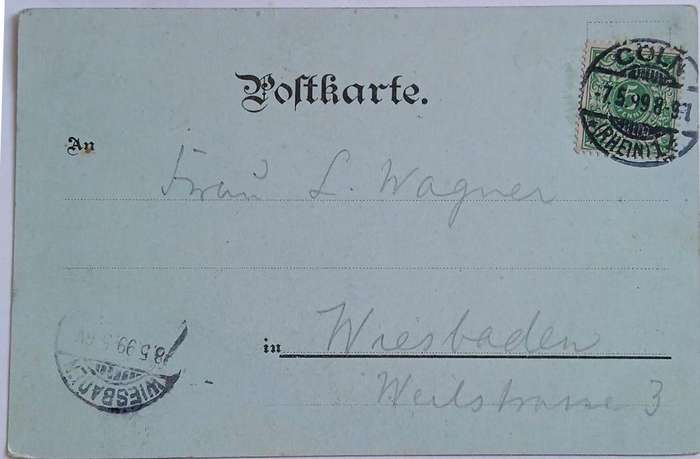 Postkarte.
CÖLN
7.5.99 8-9
(RHEIN) 1
An
Frau L. Wagner
in Wiesbaden
Weilstrasse 3
8.5.99.5
WIESBADEN